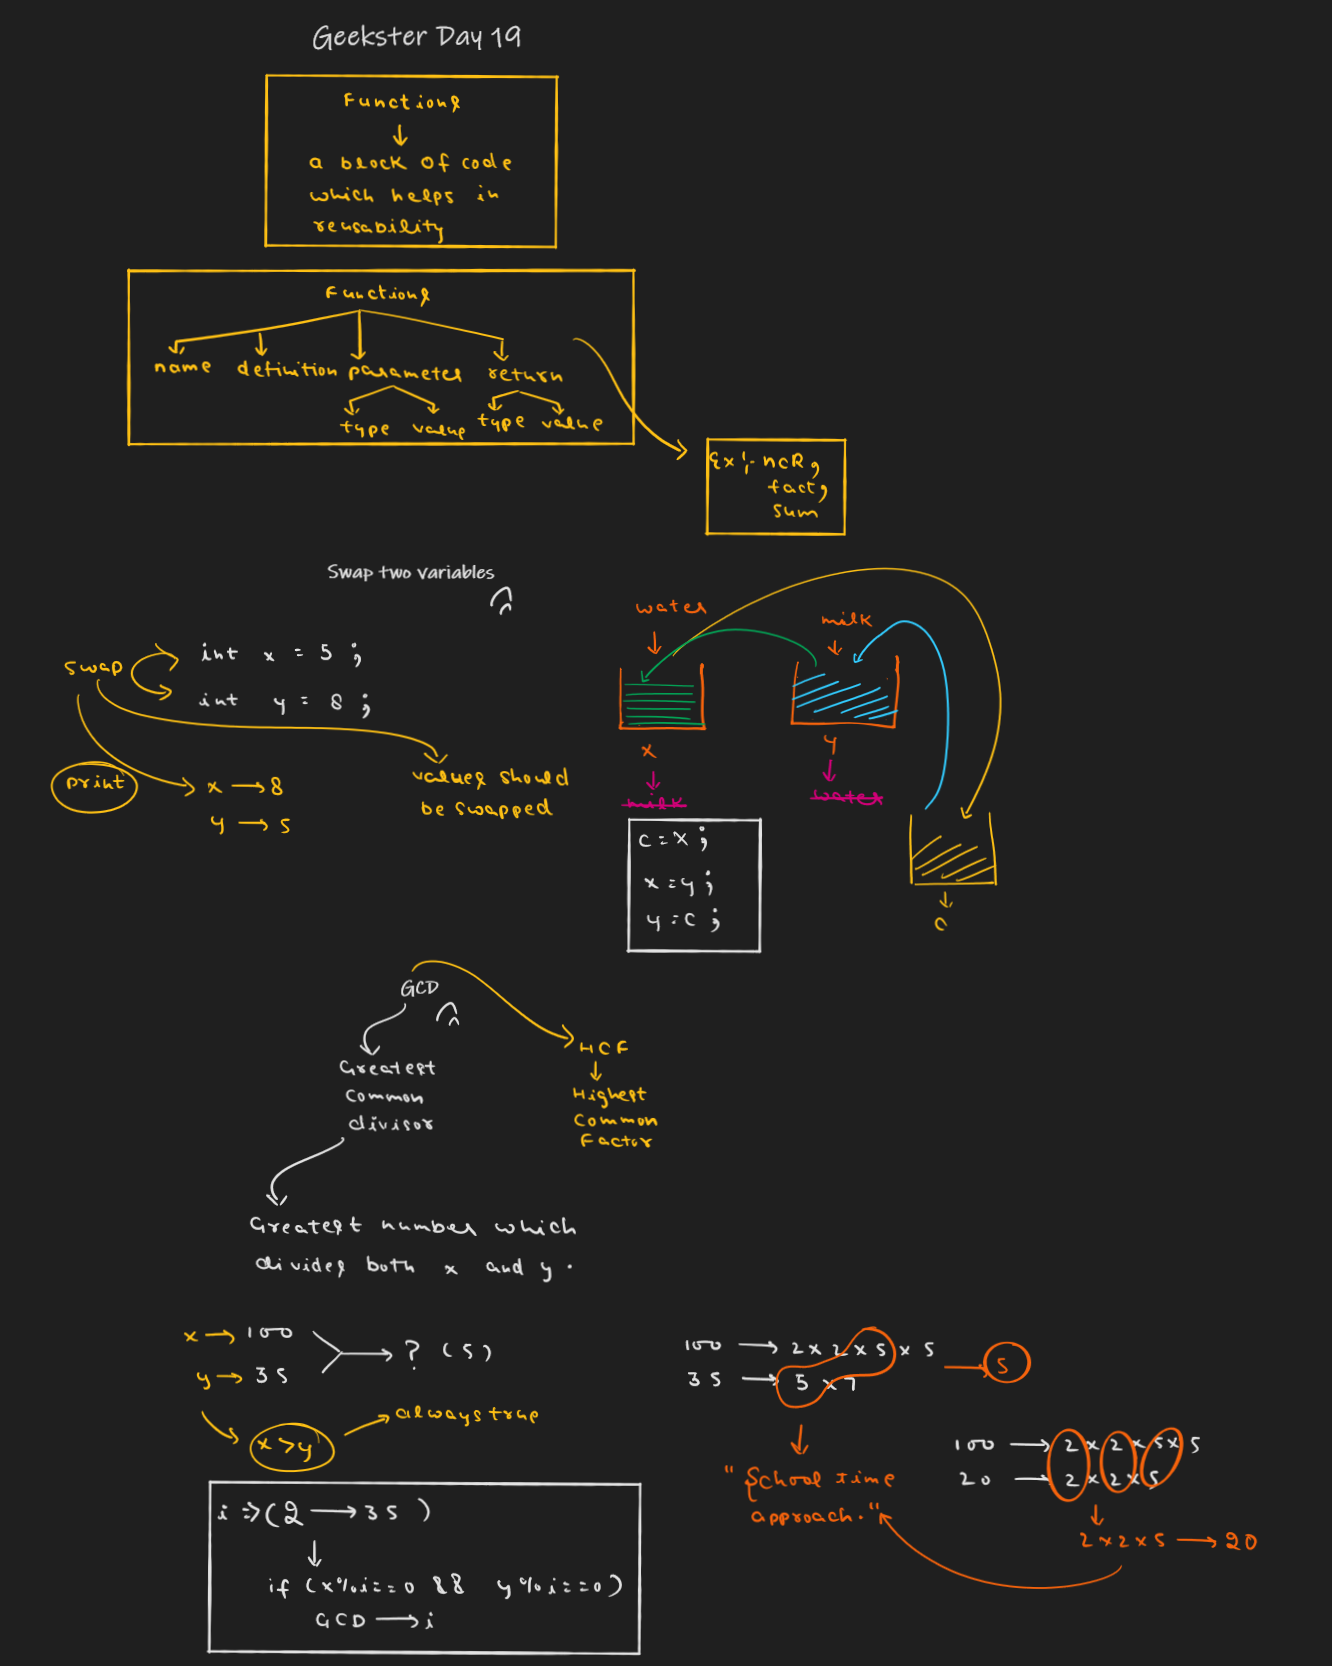 Geekster Day 19
Functions
a block of code
which helps in
reusability
Functions
name definition parameter return
type value type value
Ex:- ncR,
fact,
sum
Swap two variables
swap
int x = 5 ;
int y = 8 ;
print
x → 8
y → 5
values should
be swapped
water
milk
x
y
milk
water
c = x ;
x = y ;
y = c ;
c
GCD
Greatest
common
divisor
HCF
Highest
Common
Factor
Greatest number which
divides both x and y .
x → 100
y → 35
? (5)
x > y
always true
i => (2 → 35 )
if (x%i==0 && y%i==0)
GCD → i
100 → 2 x 2 x 5 x 5
35 → 5 x 7
5
"School time
approach."
100 → 2 x 2 x 5 x 5
20 → 2 x 2 x 5
2 x 2 x 5 → 20